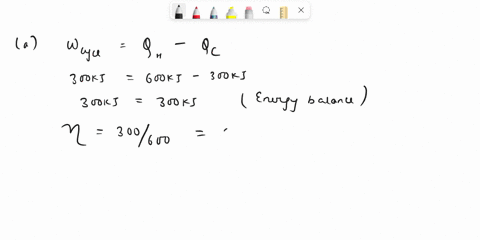 (a) Wcycle = QH - QC
300KJ = 600KJ - 300KJ
300KJ = 300KJ (Energy balance)
η = 300/600 =